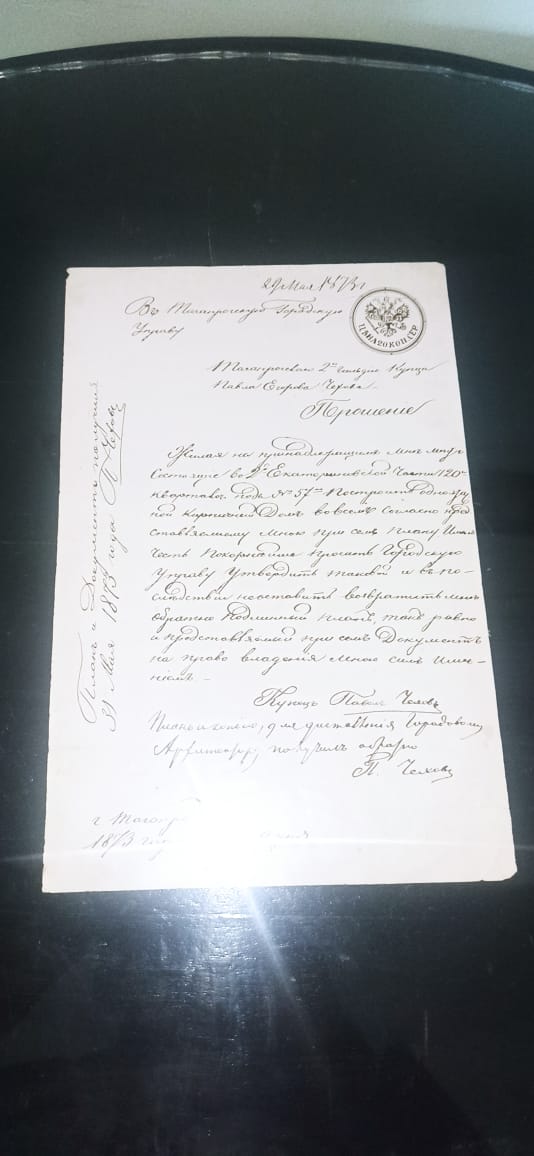 29 Мая 1873 г
Въ Таганрогскую Городскую
Управу
ЦѢНА 20 КОП. СЕР.
Таганрогскаго 2й гильдіи Купца
Павла Егорова Чехова
Прошеніе
Желая на принадлежащемъ мнѣ
Состоящемъ во 2й Екатерининской Части 120
кварталѣ подъ № 57мъ Построить одноэтаж
ной кирпичной Домъ во всемъ Согласно пред
ставляемому мною при семъ плану Имѣю
Честь Покорнѣйше просить Городскую
Управу Утвердить таковой и въ по-
слѣдствіи неоставить возвратить мнѣ
обратно Подлинный планъ, такъ равно
и представляемый при семъ Документъ
на право владенія мною симъ Имѣ-
ніемъ. -
Купецъ Павелъ Чеховъ
Планъ и копію, для доставленія Городовому
Архитектору получилъ обратно
П. Чеховъ
г Таганро
1873 год
Планъ и Документъ получилъ
31 Мая 1873 года П Чеховъ